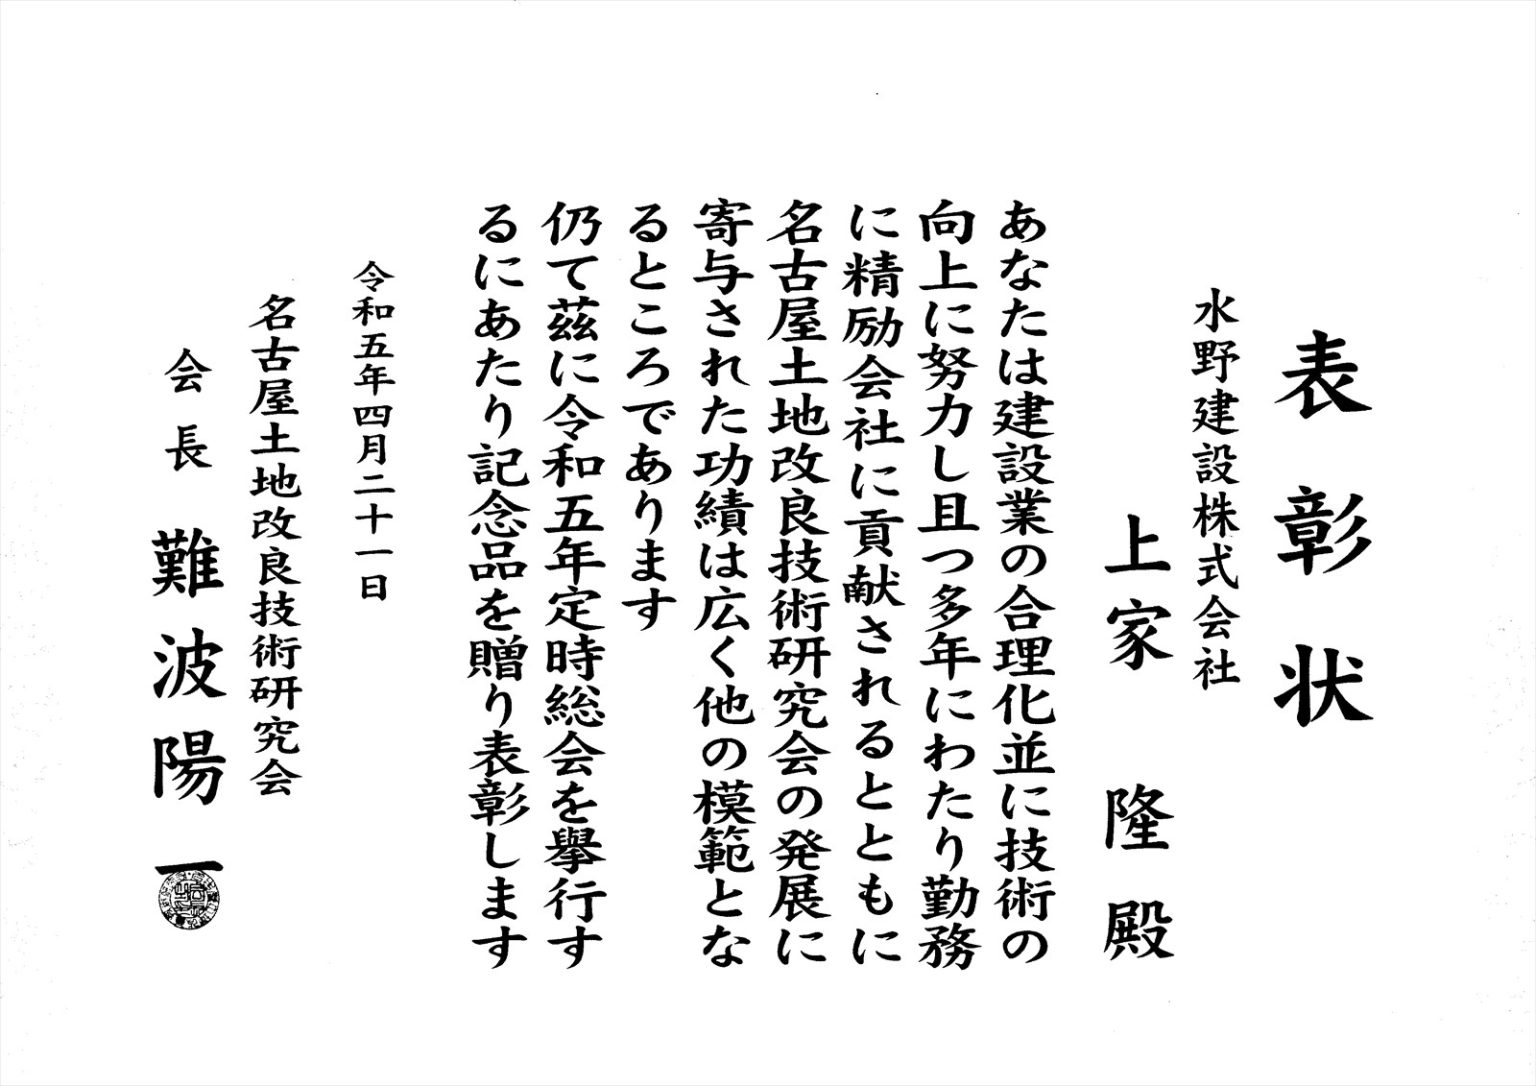 表彰状
水野建設株式会社
上家 隆殿
あなたは建設業の合理化並に技術の
向上に努力し且つ多年にわたり勤務
に精励会社に貢献されるとともに
名古屋土地改良技術研究会の発展に
寄与された功績は広く他の模範とな
るところであります
仍て茲に令和五年定時総会を擧行す
るにあたり記念品を贈り表彰します
令和五年四月二十一日
名古屋土地改良技術研究会
会長 難波陽一